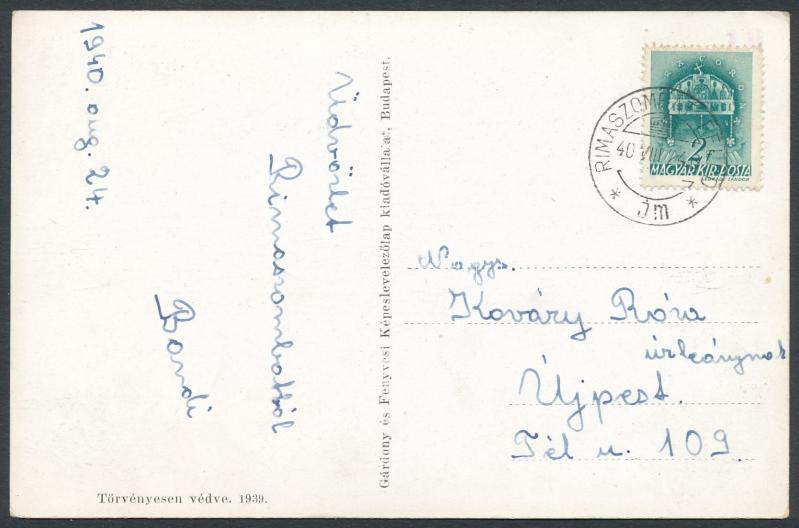 1940. aug. 24.
Üdvözlet
Rimaszombatból
Bandi
Törvényesen védve. 1939.
Gárdony és Fenyvesi Képeslevelezőlap kiadóvállalat, Budapest.
MAGYAR KIR. POSTA
2
RIMASZOMBAT
40 VIII
Nagys.
Kováry Róza
úrleánynak
Újpest.
Tél u. 109.